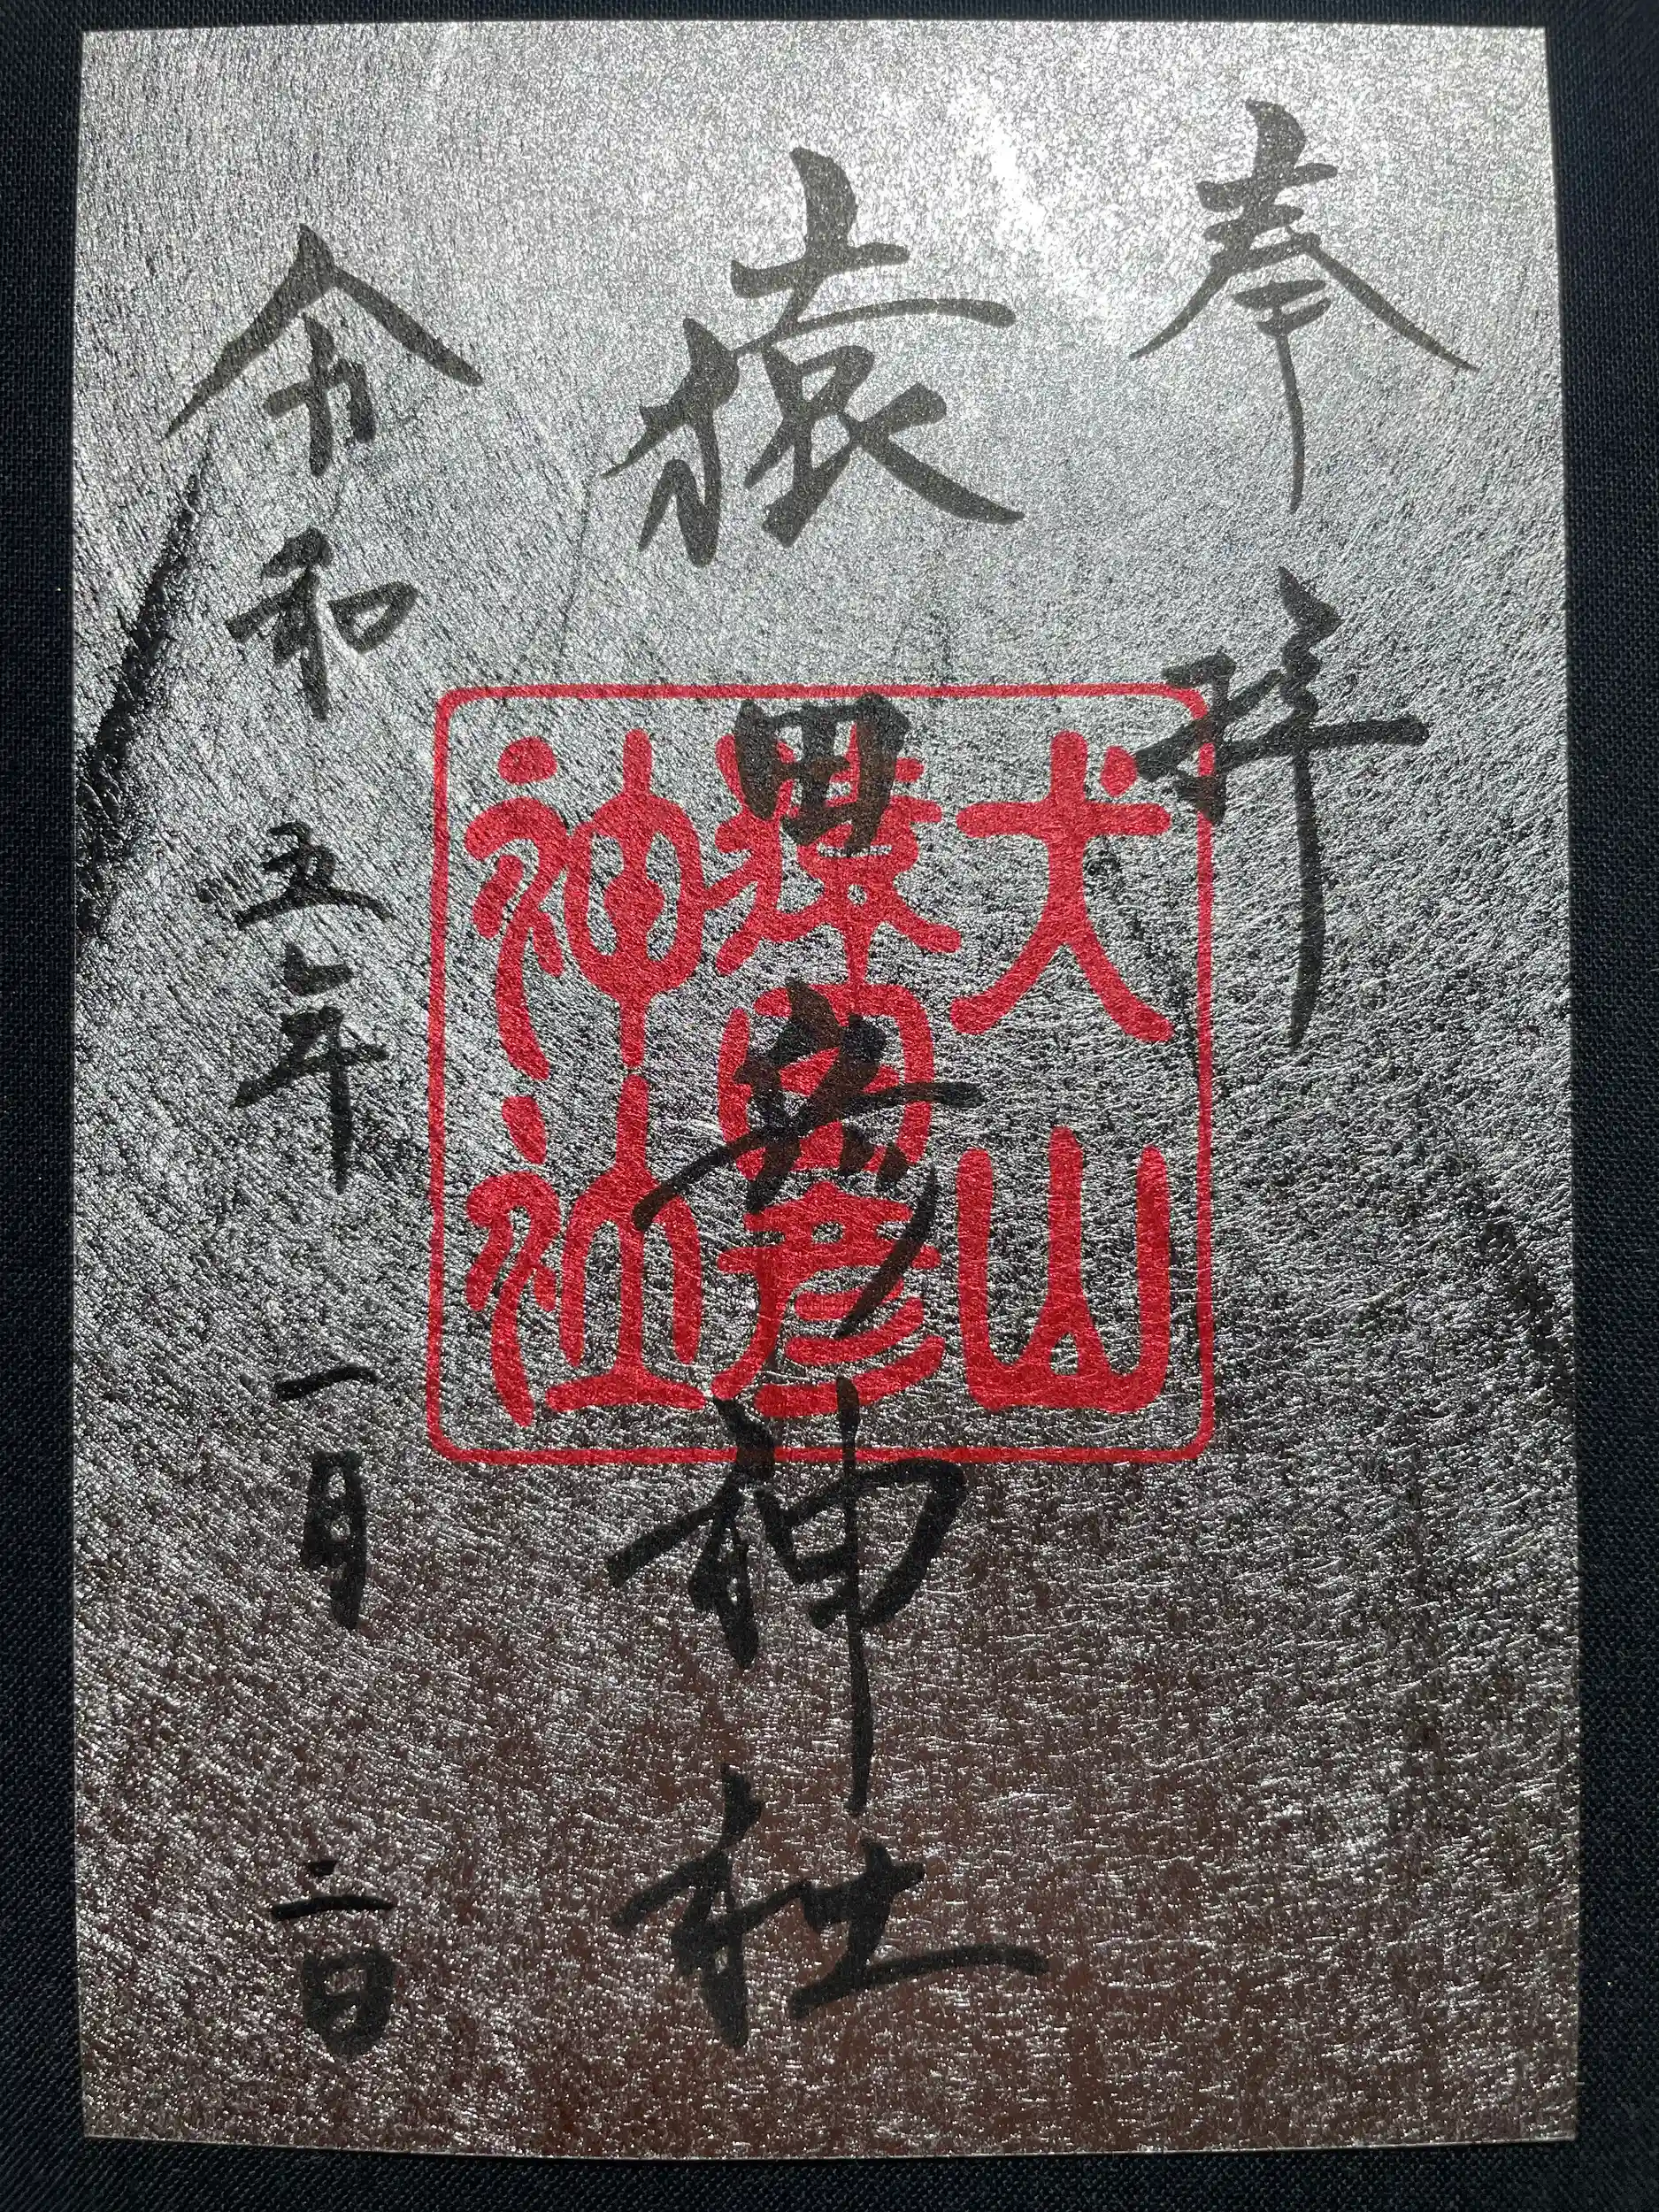 奉拝
猿田彦神社
令和五年一月二日
犬山
猿田彦
神社